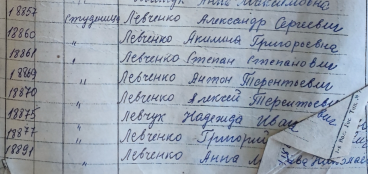 18857 студенит Левченко Александр Сергеевич
18860 " Левченко Акилина Григорьевна
18861 " Левченко Степан Степанович
18869 " Левченко Антон Терентьевич
18870 " Левченко Алексей Терентьеви
18875 " Левчук Надежда Иван
18877 " Левченко Григорий
18891 " Левченко Анна М